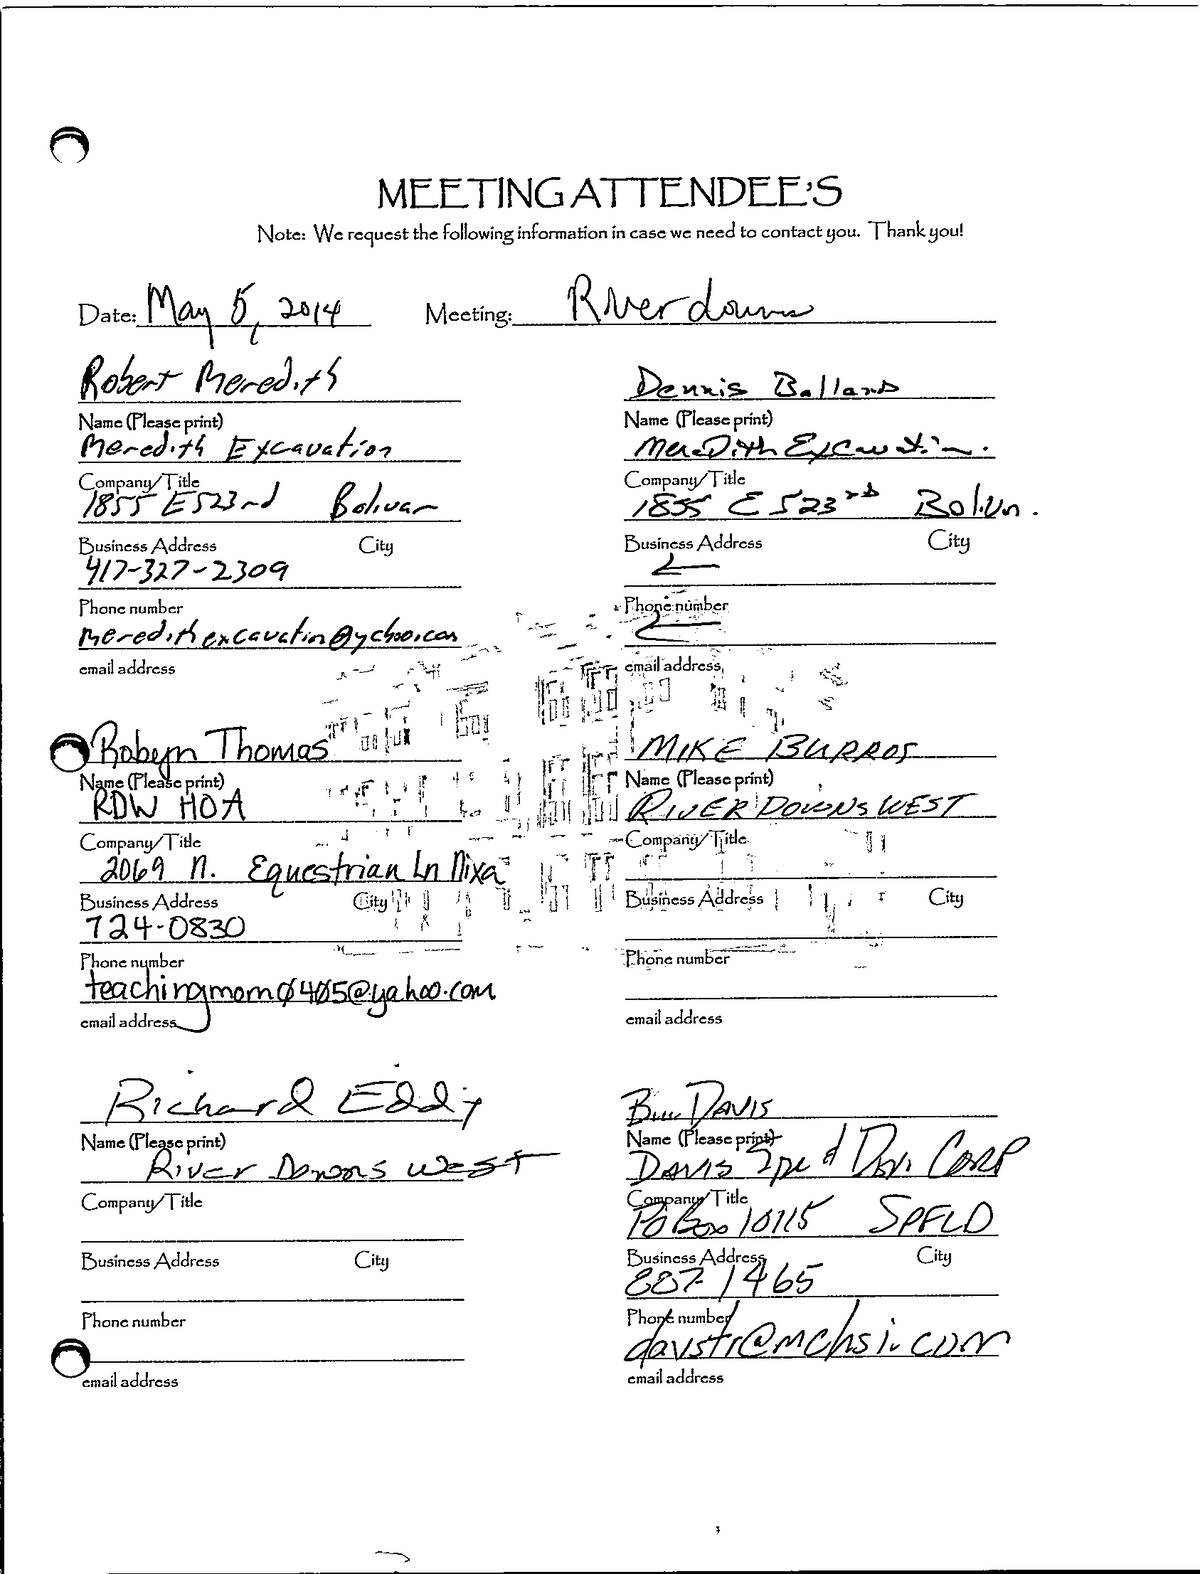 MEETING ATTENDEE'S
Note: We request the following information in case we need to contact you. Thank you!
Date: May 5, 2014 Meeting: River downs
Robert Meredith
Name (Please print)
Meredith Excavation
Company/Title
1855 E 523rd Bolivar
Business Address City
417-327-2309
Phone number
meredithexcavatin@yahoo.com
email address
Dennis Ballard
Name (Please print)
Meredith Excavation.
Company/Title
1855 E 523rd
Business Address City
Phone number
email address
Robyn Thomas
Name (Please print)
RDW HOA
Company/Title
2069 N. Equestrian Ln Nixa
Business Address City
724-0830
Phone number
teachingmom0405@yahoo.com
email address
MIKE BURROS
Name (Please print)
RIVER DOWNS WEST
Company/Title
Business Address City
Phone number
email address
Richard Eddy
Name (Please print)
River Downs West
Company/Title
Business Address City
Phone number
email address
Bill DAVIS
Name (Please print)
DAVIS CORP
Company/Title
PO Box 10115 SPFLD
Business Address City
887-1465
Phone number
email address